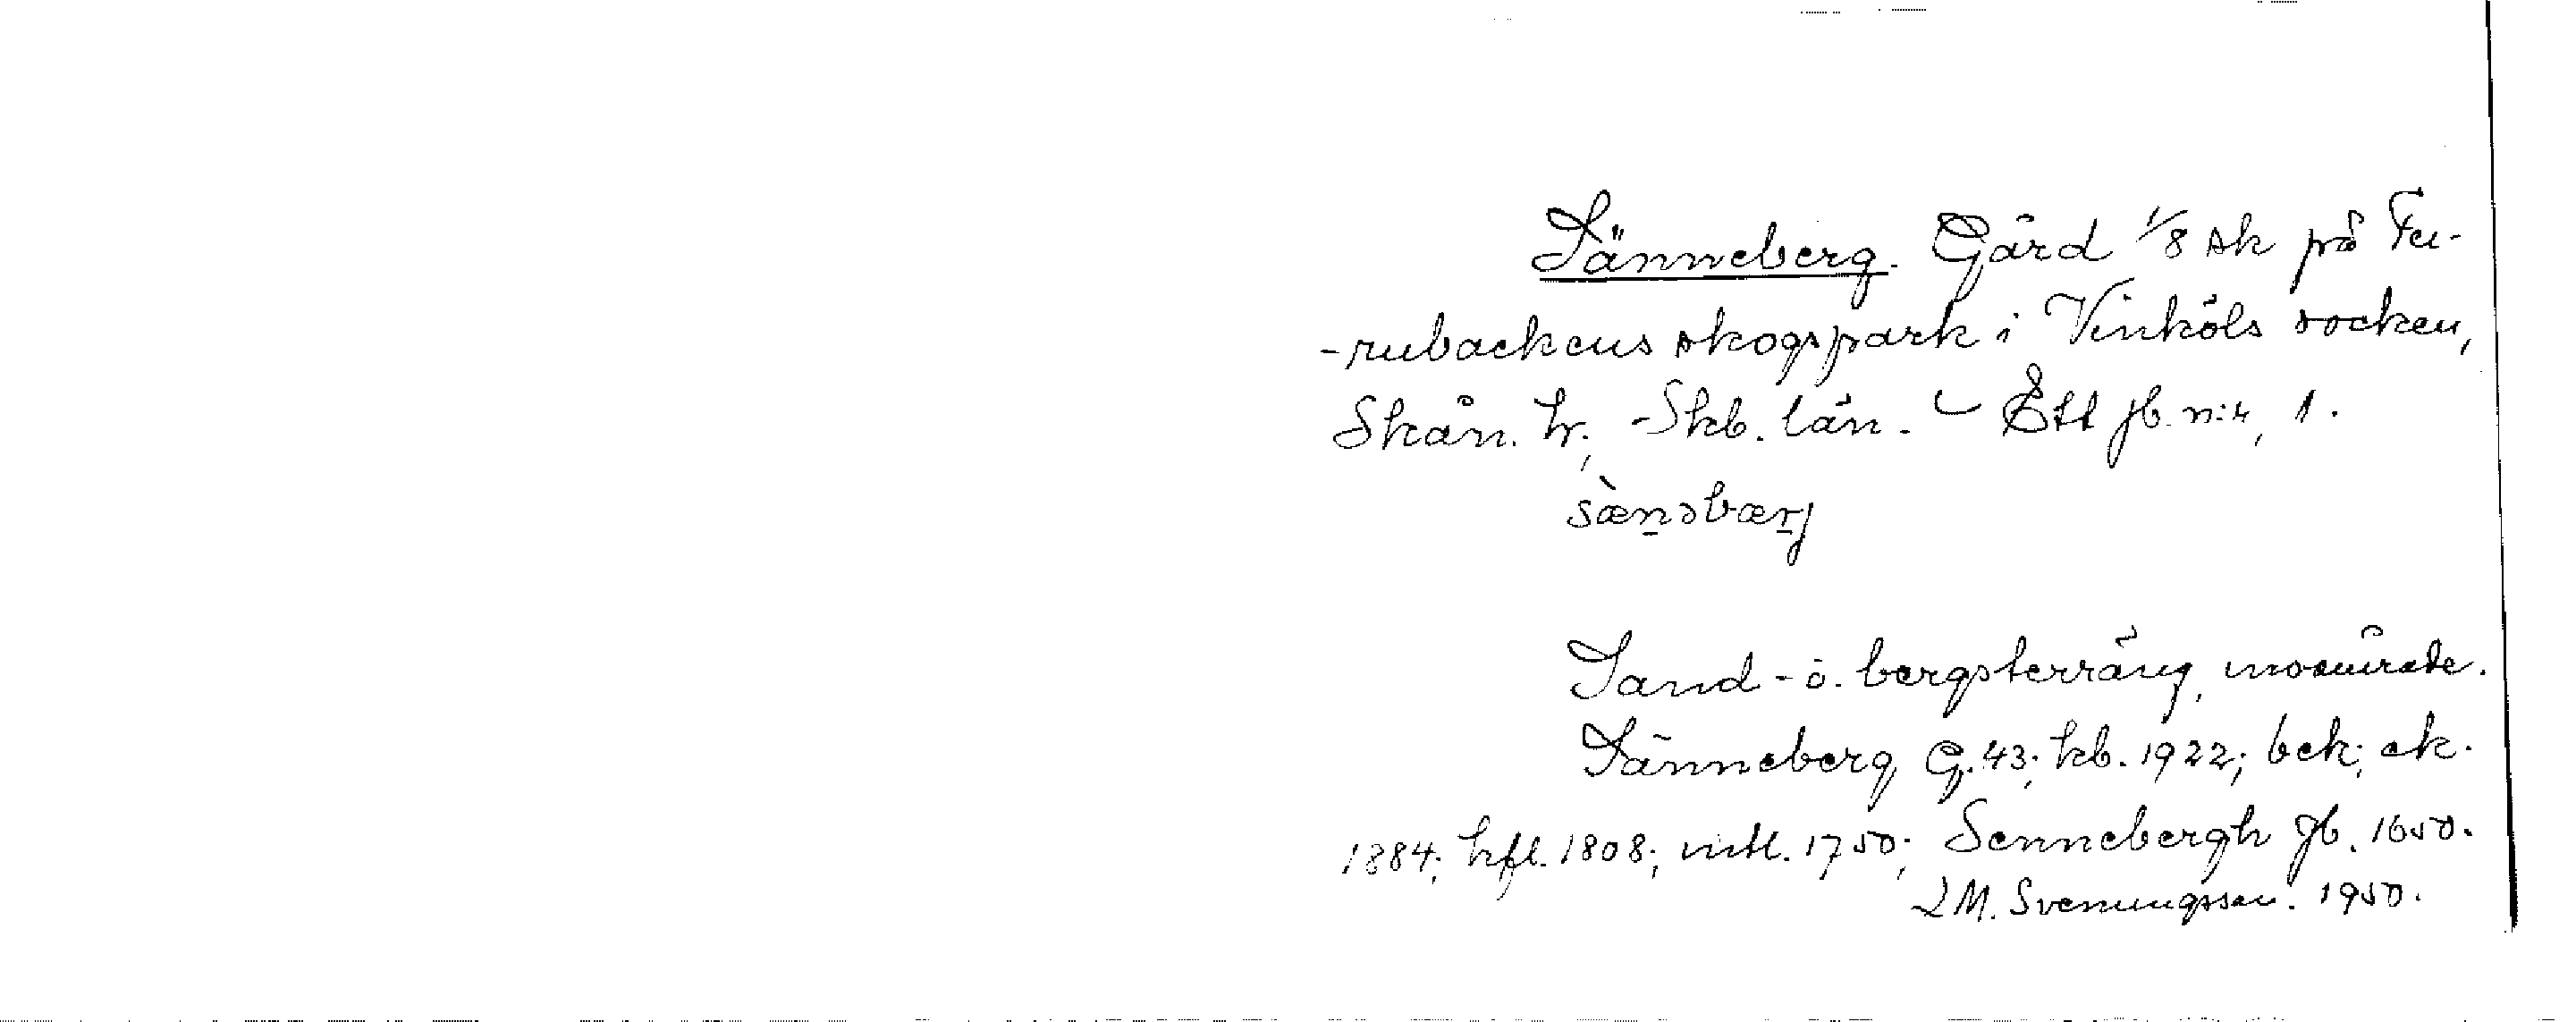 Sänneberg. Gård 1/8 sk på Fu-
-rubackens skogspark i Vinköls socken,
Skån. hr., Skb. län. - Ett jb. n:r, 1.
sæ̀nəbærj
Sand- o. bergsterräng, mosürade.
Sänneberg G. 43; kb. 1922; bek; ek.
1884; hfl. 1808; mtl. 1750; Sennebergh Jb. 1650.
L M. Svenungsson. 1950.